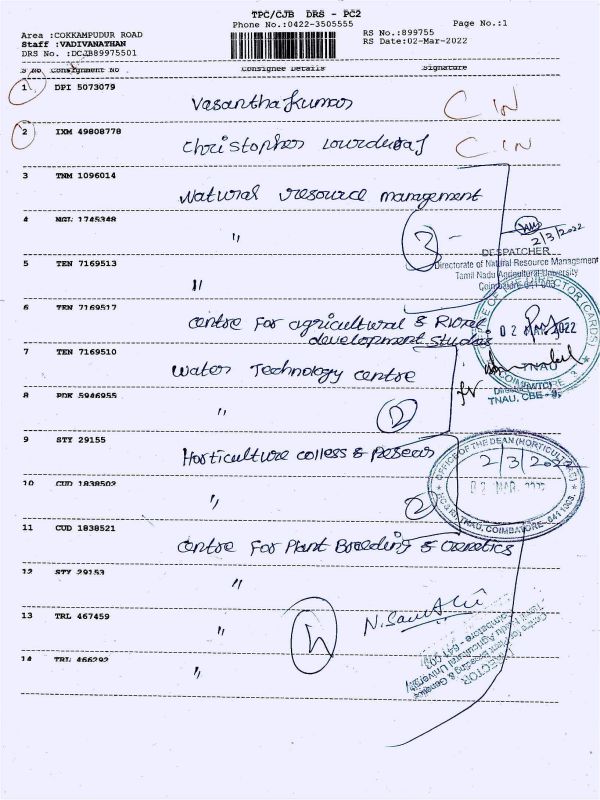 TPC/CJB DRS - PC2
Phone No.:0422-3505555
Page No.:1
Area :COKKAMPUDUR ROAD
RS No.:899755
Staff :VADIVANATHAN
RS Date:02-Mar-2022
DRS No. :DCJB89975501
S No Consignment No Consignee Details Signature
1 DPI 5073079 Vasanthakumar C IN
2 IXM 49808778 Christopher C IN
3 TNM 1096014 Natural resource management
4 NGL 1745348 "
2/3/2022
DESPATCHER
Directorate of Natural Resource Management
Tamil Nadu Agricultural University
Coimbatore-641 003
5 TEN 7169513 "
6 TEN 7169517 centre for agricultural & Rural
development studies
02 MAR 2022
7 TEN 7169510 Water Technology centre
TNAU
TNAU, CBE - 3.
8 PDK 5946955 "
2
9 STY 29155 Horticulture
OFFICE OF THE DEAN (HORTICULTURE)
2/3/2022
02 MAR 2022
HC & RI, TNAU, COIMBATORE - 641 003.
10 CUD 1838502 "
2
11 CUD 1838521 centre for Plant Breeding & Genetics
12 STY 29153 "
13 TRL 467459 "
14 TRL 466292 "
DIRECTOR
Centre for Plant Breeding & Genetics
Tamil Nadu Agricultural University
Coimbatore - 641 003